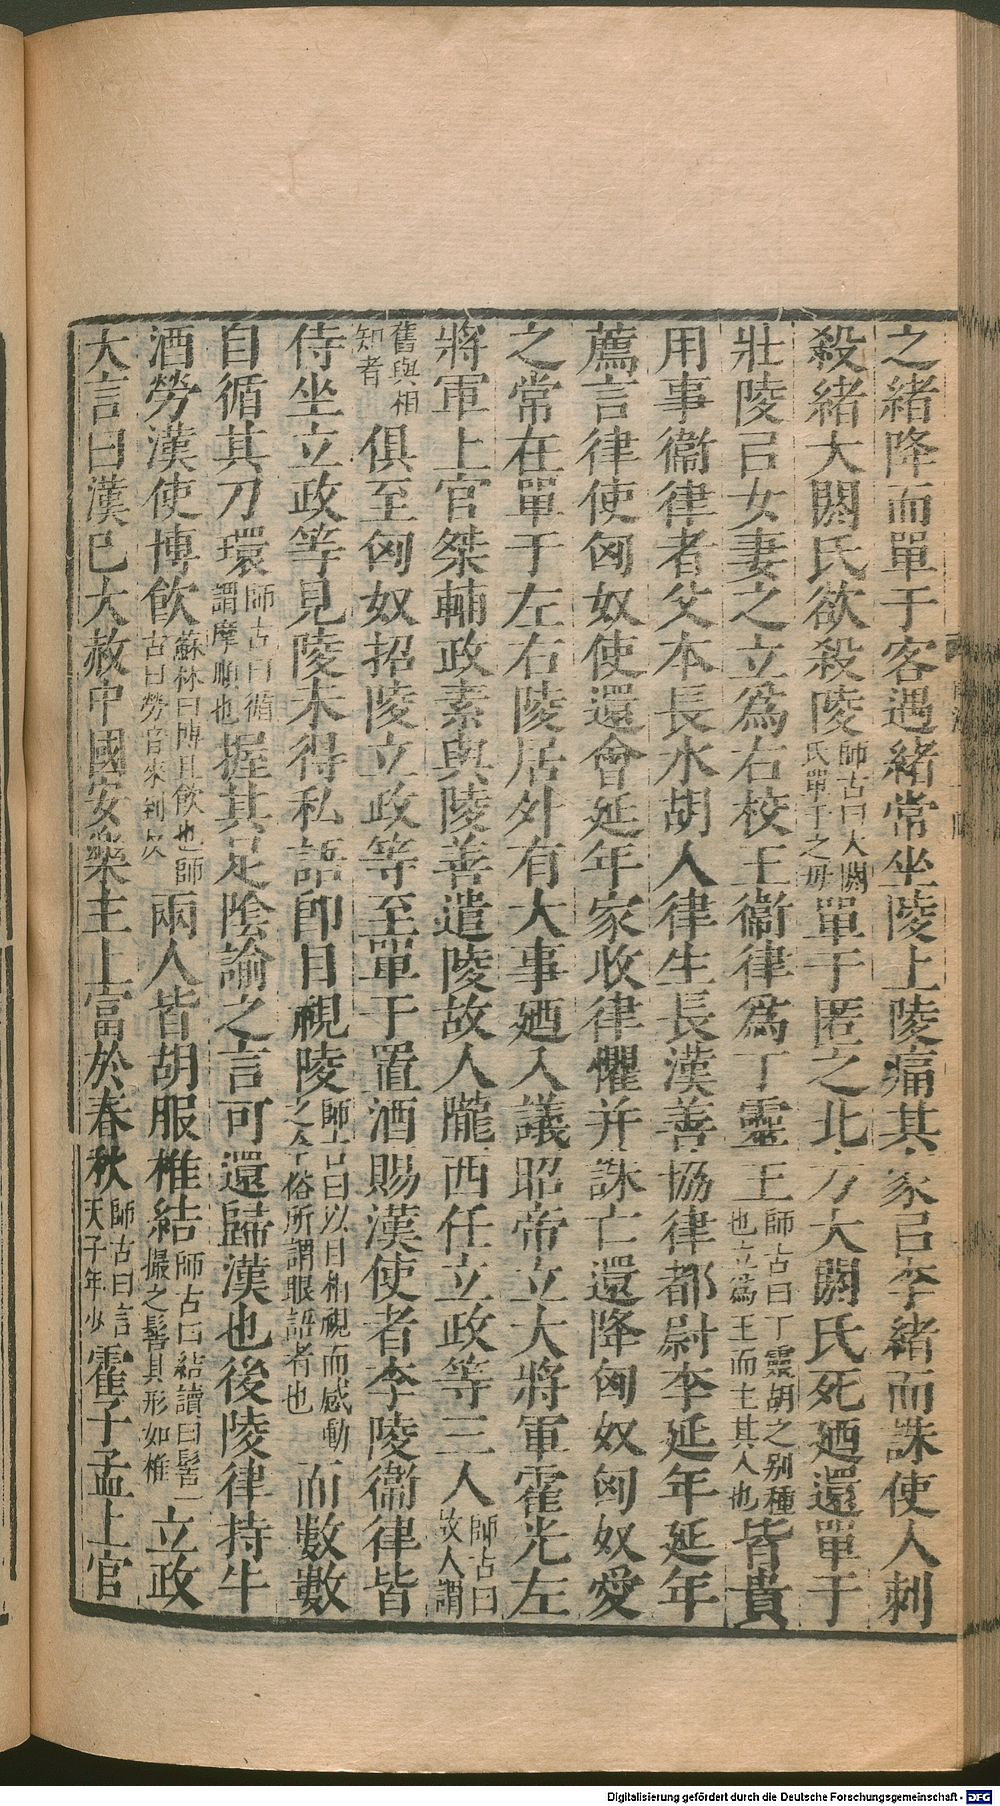 之緒降而單于客遇緒常坐陵上陵痛其家㠯李緒而誅使人刺
殺緒大閼氏欲殺陵師古曰大閼氏單于之母單于匿之北方大閼氏死廼還單于
壯陵㠯女妻之立爲右校王衞律爲丁靈王師古曰丁靈胡之别種也立爲王而主其人也皆貴
用事衞律者父本長水胡人律生長漢善協律都尉李延年延年
薦言律使匈奴使還會延年家收律懼并誅亡還降匈奴匈奴愛
之常在單于左右陵居外有大事廼入議昭帝立大將軍霍光左
將軍上官桀輔政素與陵善遣陵故人隴西任立政等三人師古曰故人謂
舊與相知者俱至匈奴招陵立政等至單于置酒賜漢使者李陵衞律皆
侍坐立政等見陵未得私語即目視陵師古曰以目相視而感動之今俗所謂眼語者也而數數
自循其刀環師古曰循謂摩順也握其足陰諭之言可還歸漢也後陵律持牛
酒勞漢使博飲蘇林曰博且飲也師古曰勞音來到反兩人皆胡服椎結師古曰結讀曰髻一撮之髻其形如椎立政
大言曰漢已大赦中國安樂主上富於春秋師古曰言天子年少霍子孟上官
Digitalisierung gefördert durch die Deutsche Forschungsgemeinschaft - DFG